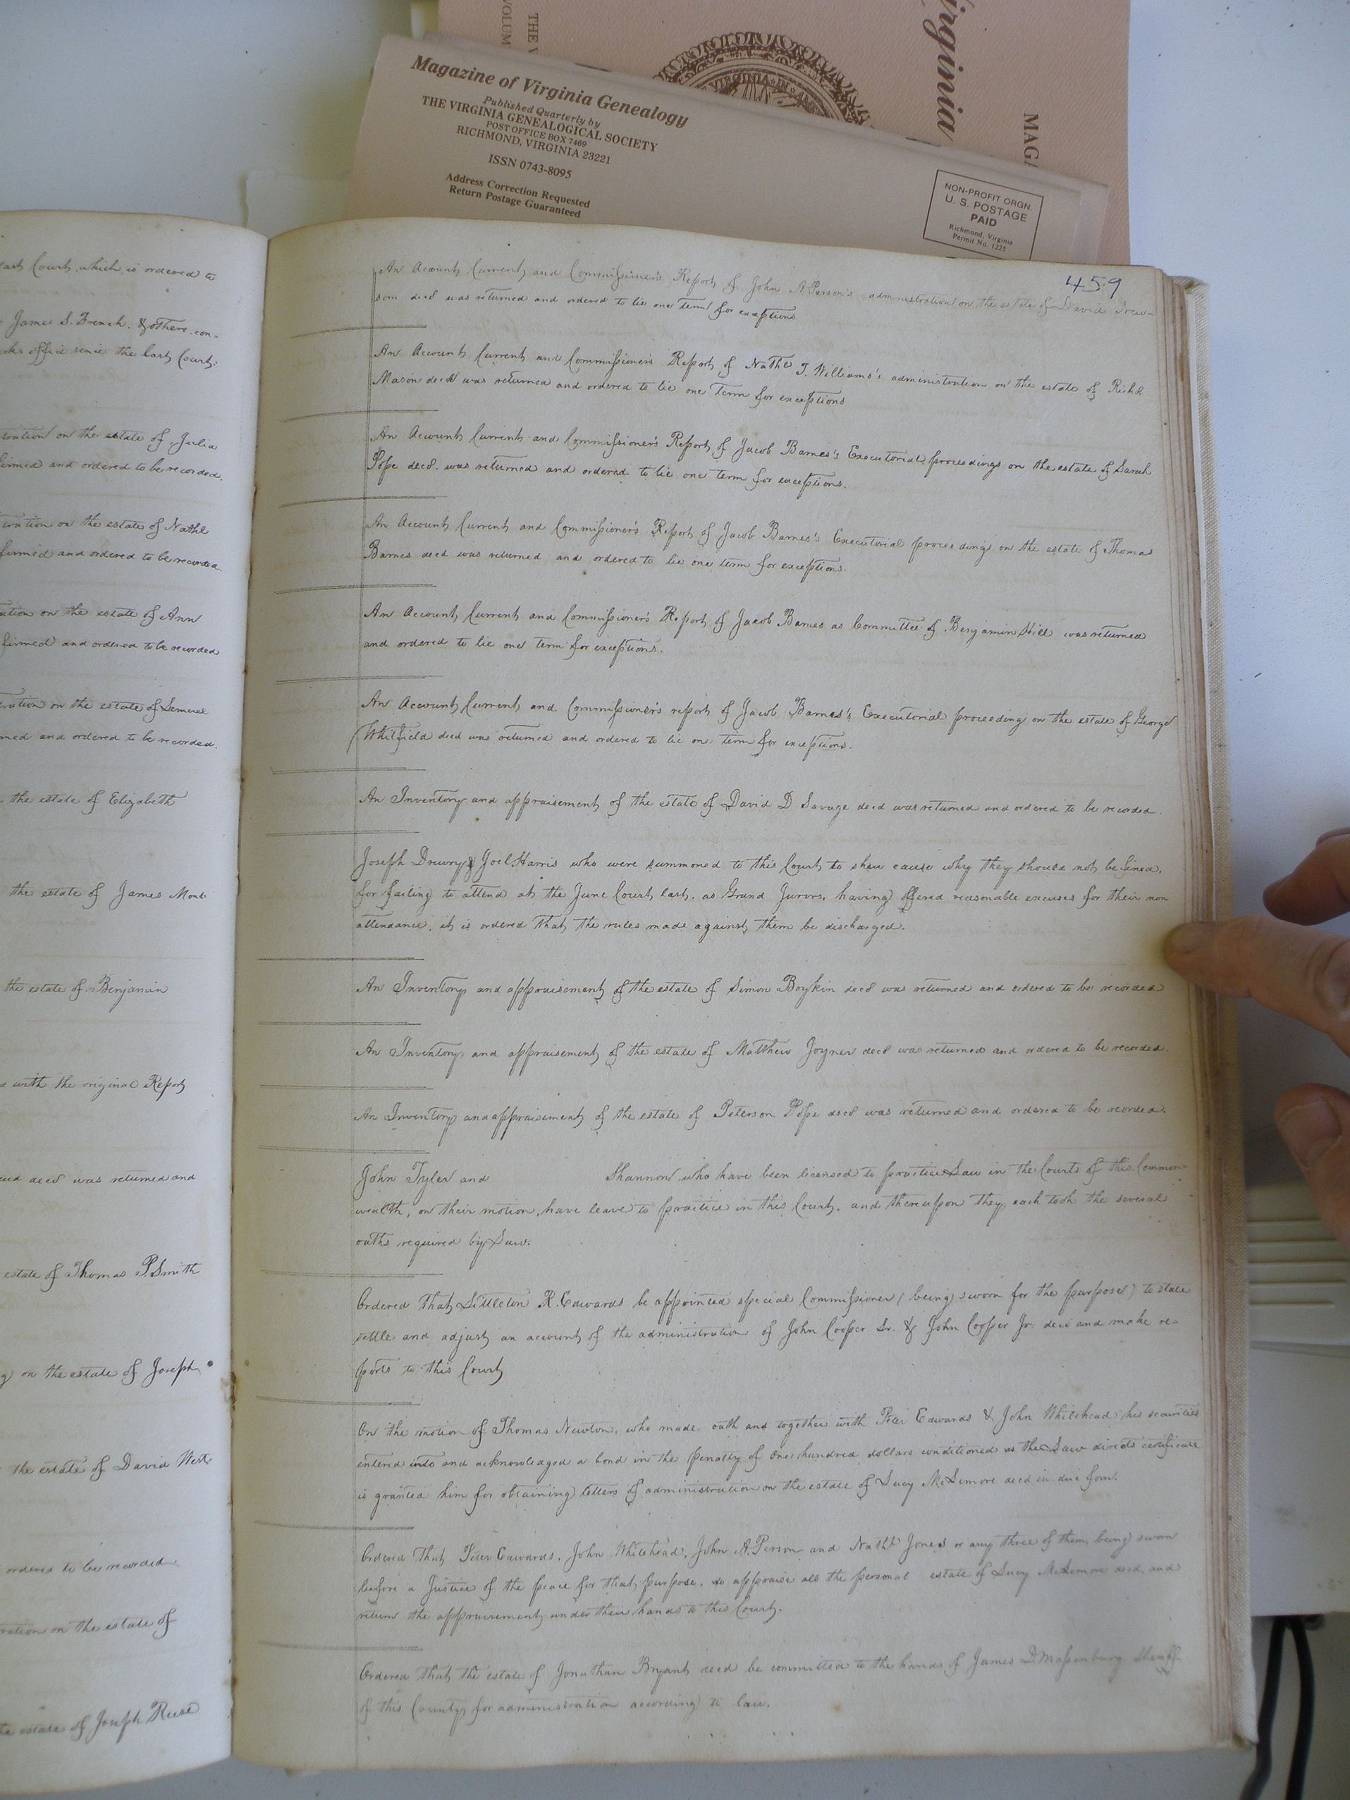 THE V
VOLUM
Virginia
MAGA
VIRGINIA
Magazine of Virginia Genealogy
Published Quarterly by
THE VIRGINIA GENEALOGICAL SOCIETY
POST OFFICE BOX 7469
RICHMOND, VIRGINIA 23221
ISSN 0743-8095
Address Correction Requested
Return Postage Guaranteed
NON-PROFIT ORGN.
U. S. POSTAGE
PAID
Richmond, Virginia
Permit No. 1225
last Court, which is ordered to
James S. French, & others con-
office since the last Court,
tration on the estate of Julia
firmed and ordered to be recorded.
tration on the estate of Nathl
firmed and ordered to be recorded
ration on the estate of Ann
firmed and ordered to be recorded
ration on the estate of Lemuel
med and ordered to be recorded.
the estate of Elizabeth
the estate of James Mont
the estate of Benjamin
with the original Report
decd was returned and
estate of Thomas P. Smith
on the estate of Joseph
the estate of David West
ordered to be recorded
ration on the estate of
the estate of Joseph Ruse
459
An Account Current and Commissioner's Report of John A. Person's administration on the estate of David Drew-
decd was returned and ordered to lie one term for exceptions
An Account Current and Commissioner's Report of Nathl T. Williams's administration on the estate of Richd
Mason decd was returned and ordered to lie one Term for exceptions
An Account Current and Commissioner's Report of Jacob Barnes's Executorial proceedings on the estate of Sarah
Pope decd was returned and ordered to lie one term for exceptions.
An Account Current and Commissioner's Report of Jacob Barnes's Executorial proceedings on the estate of Thomas
Barnes decd was returned and ordered to lie one term for exceptions.
An Account Current and Commissioner's Report of Jacob Barnes as Committee of Benjamin Hill was returned
and ordered to lie one term for exceptions.
An Account Current and Commissioner's report of Jacob Barnes's Executorial proceeding on the estate of George
Whitfield decd was returned and ordered to lie on term for exceptions.
An Inventory and appraisement of the estate of David D Savage decd was returned and ordered to be recorded.
Joseph Drewry & Joel Harris who were summoned to this Court to shew cause why they should not be fined,
for failing to attend at the June Court last, as Grand Jurors, having offered reasonable excuses for their non
attendance, it is ordered that the rules made against them be discharged.
An Inventory and appraisement of the estate of Simon Boykin decd was returned and ordered to be recorded
An Inventory and appraisement of the estate of Matthew Joyner decd was returned and ordered to be recorded.
An Inventory and appraisement of the estate of Peterson Pope decd was returned and ordered to be recorded.
John Tyler and Shannon who have been licensed to practice Law in the Courts of this Common-
wealth, on their motion, have leave to practice in this Court, and thereupon they each took the several
oaths required by Law.
Ordered that Littleton R. Edwards be appointed special Commissioner (being sworn for the purpose) to state
settle and adjust an account of the administration of John Cooper Sr. & John Cooper Jr. decd and make re-
ports to this Court
On the motion of Thomas Newton, who made oath and together with Peter Edwards & John Whitehead his securities
entered into and acknowledged a bond in the penalty of one hundred dollars conditioned as the Law directs certificate
is granted him for obtaining letters of administration on the estate of Lucy McLemore decd in due form.
Ordered that Peter Edwards, John Whitehead, John A. Person and Nathl Jones or any three of them, being sworn
before a Justice of the peace for that purpose, do appraise all the personal estate of Lucy McLemore decd, and
return the appraisement under their hands to this Court.
Ordered that the estate of Jonathan Bryant decd be committed to the hands of James D Massenburg Sheriff
of this County for administration according to law.